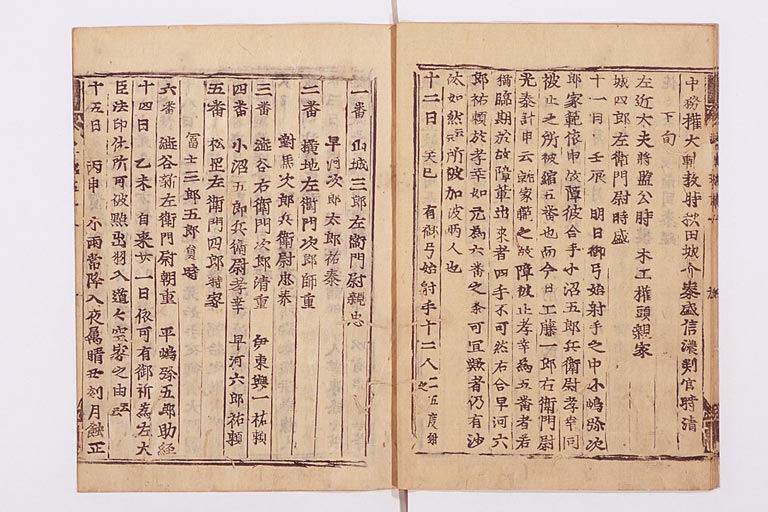 中務権大輔教時 秋田城介泰盛 信濃判官時清
左近大夫将監公時 木工権頭親家
城四郎左衛門尉時盛
十一日 壬辰 明日御弓始射手之中小嶋弥次
郎家範依申故障被合手小沼五郎兵衛尉孝幸同
被止之所被縮五番也而今日工藤一郎右衛門尉
光泰計申云郎家範之故障被止孝幸為五番者若
猶臨期於故障輩出来者四手不可然右合早河六
郎祐頼於孝幸如元為六番之条可宜歟者仍有沙
汰如然所被加彼両人也
十二日 癸巳 有御弓始射手十二人二五度射之
一番 山城三郎左衛門尉親忠
早河次郎太郎祐泰
二番 横地左衛門次郎師重
對馬次郎兵衛尉忠泰
三番 澁谷右衛門次郎清重 伊東與一祐頼
四番 小沼五郎兵衛尉孝幸 早河六郎祐頼
五番 松岡左衛門四郎時家
冨士三郎五郎員時
六番 澁谷新左衛門尉朝重 平嶋弥五郎助経
十四日 乙未 自来廿一日依可有御祈為左大
臣法印住所可被點出羽入道々空家之由云云
十五日 丙申 小雨常降入夜属晴丑刻月蝕正